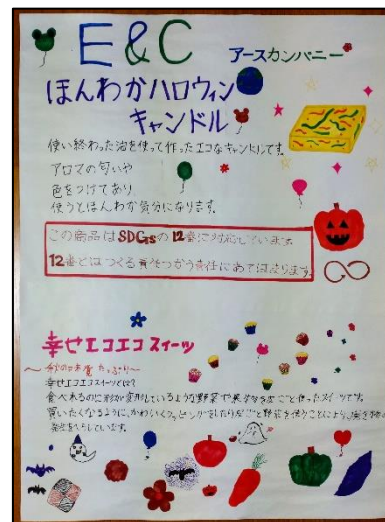 E&C
アースカンパニー
ほんわかハロウィン
キャンドル
使い終わった油を使って作ったエコなキャンドルです。
アロマの匂いや
色をつけており、
使うとほんわか気分になります。
この商品はSDGsの12番に対応しています
12番とはつくる責任つかう責任にあてはまります。
幸せエコエコスイーツ
幸せエコエコスイーツとは?
食べれるのに形が変形しているような野菜や果物を丸ごと使ったスイーツです。
買いたくなるように、かわいくラッピングをしたり丸ごと野菜を使うことにより、